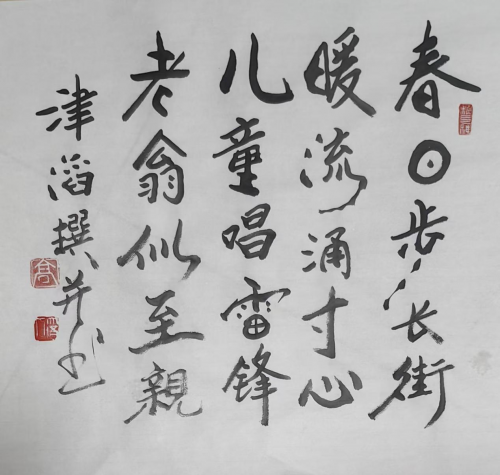 春日步长街
暖流涌寸心
儿童唱雷锋
老翁似至親
津滔撰并书